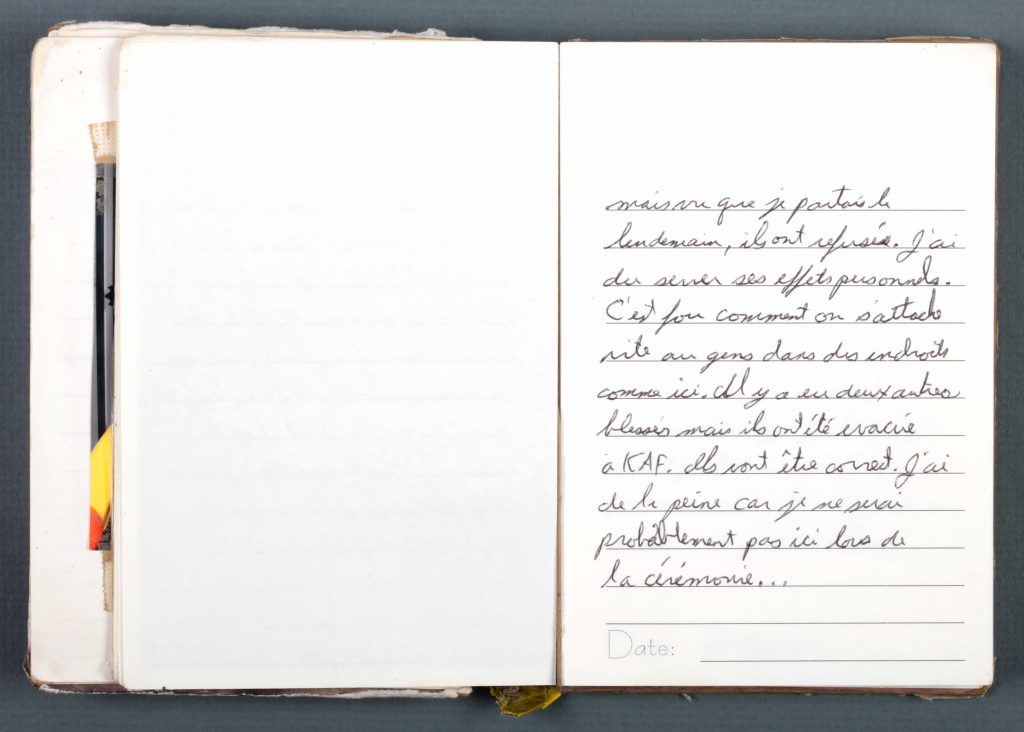 mais vu que je partais le
lendemain, ils ont refusés. J'ai
du serrer ses effets personnels.
C'est fou comment on s'attache
vite au gens dans des endroits
comme ici. Il y a eu deux autres
blessés mais ils ont été evacué
à KAF. Ils vont être correct. J'ai
de la peine car je ne serai
probablement pas ici lors de
la cérémonie...
Date: